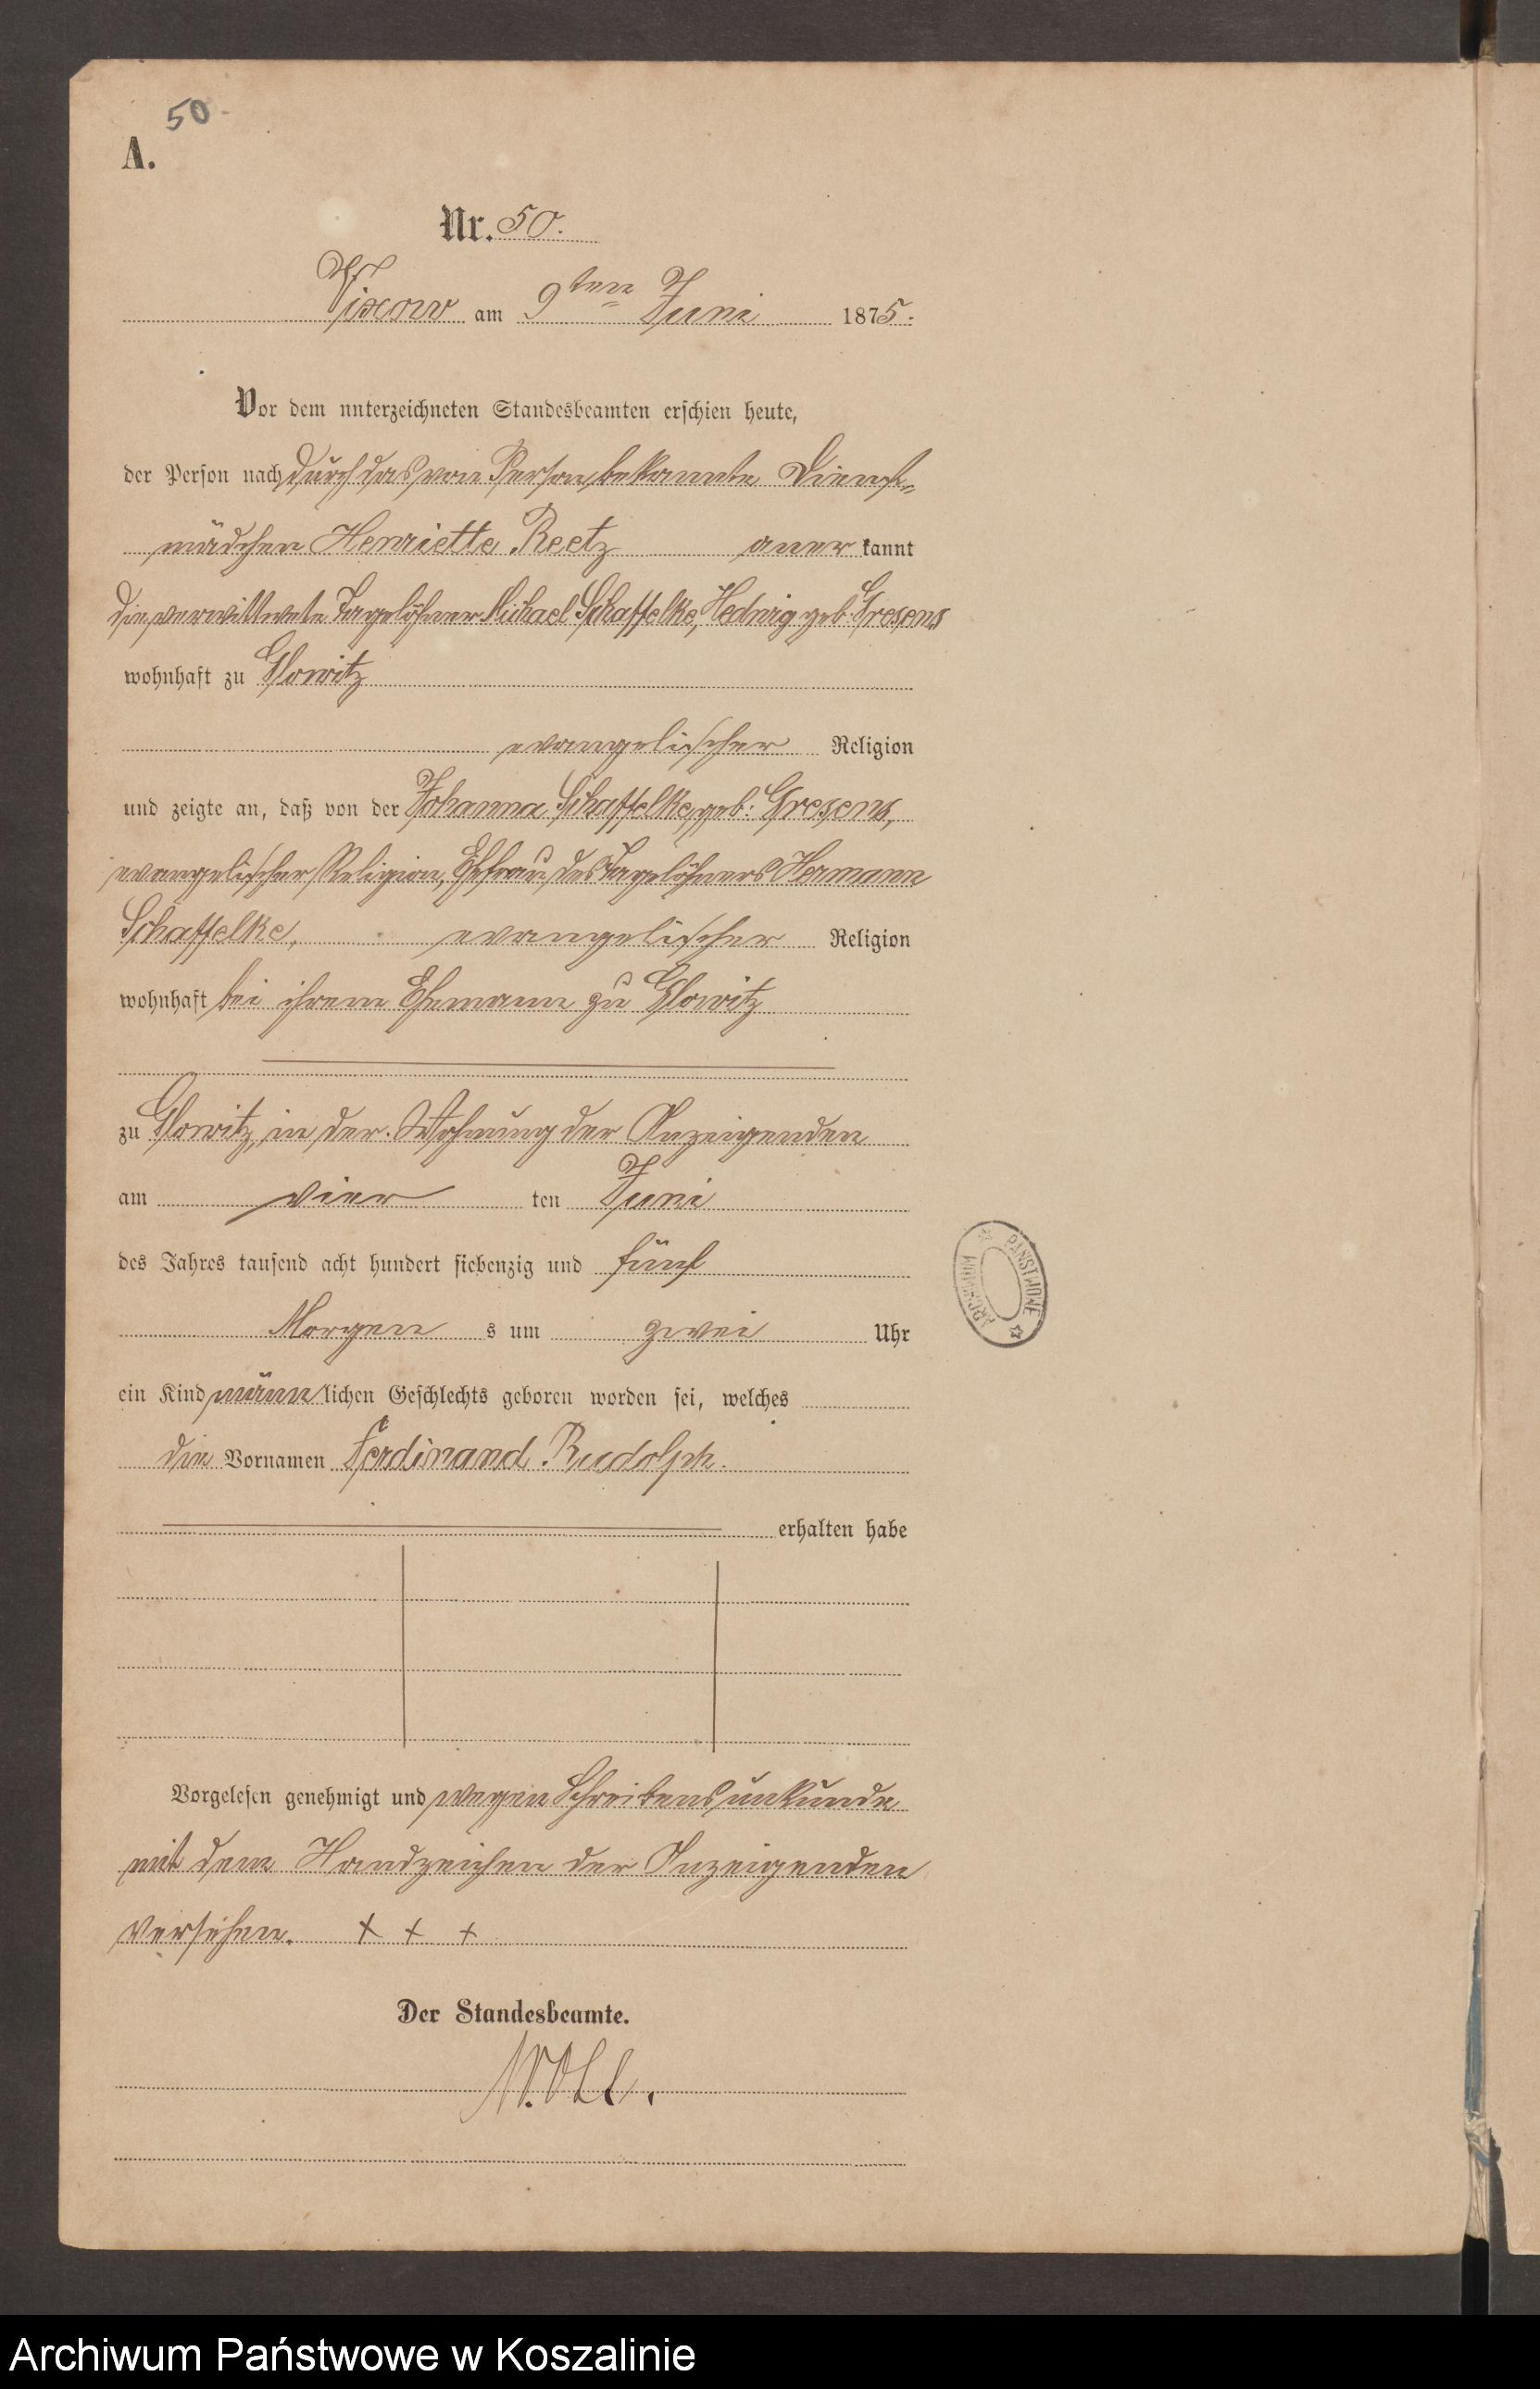 50
A.
Nr. 50.
Vixow am 9ten Juni 1875.
Vor dem unterzeichneten Standesbeamten erschien heute,
der Person nach durch das von Person bekannte Dienst=
mädchen Henriette Reetz anerkannt
die verwittwete Tagelöhner Michael Schaffelke, Hedwig geb. Gresens
wohnhaft zu Glowitz
evangelischer Religion
und zeigte an, daß von der Johanna Schaffelke, geb: Gresens,
evangelischer Religion, Ehefrau des Tagelöhners Hermann
Schaffelke, evangelischer Religion
wohnhaft bei ihrem Ehemann zu Glowitz
zu Glowitz, in der Wohnung der Anzeigenden
am vierten Juni
des Jahres tausend acht hundert siebenzig und fünf
Morgens um zwei Uhr
ein Kind männlichen Geschlechts geboren worden sei, welches
die Vornamen Ferdinand Rudolph.
erhalten habe
ARCHIWUM PAŃSTWOWE
Vorgelesen genehmigt und wegen Schreibensunkunde
mit dem Handzeichen der Anzeigenden
versehen. + + +
Der Standesbeamte.
Archiwum Państwowe w Koszalinie